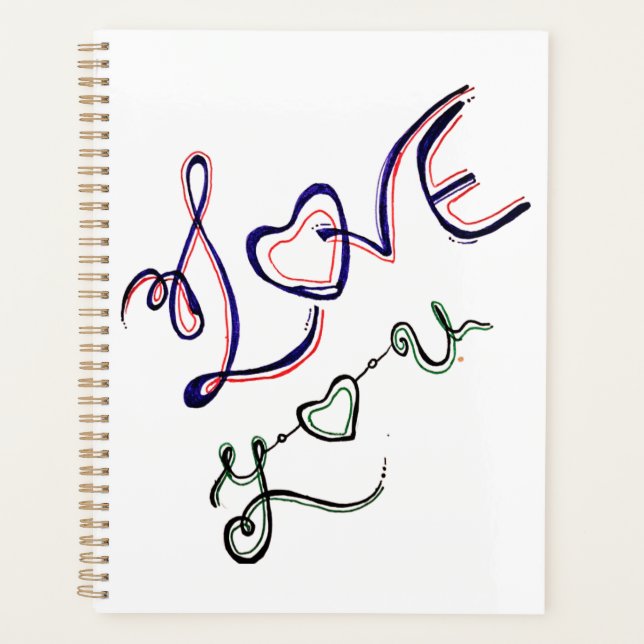 LovE
you